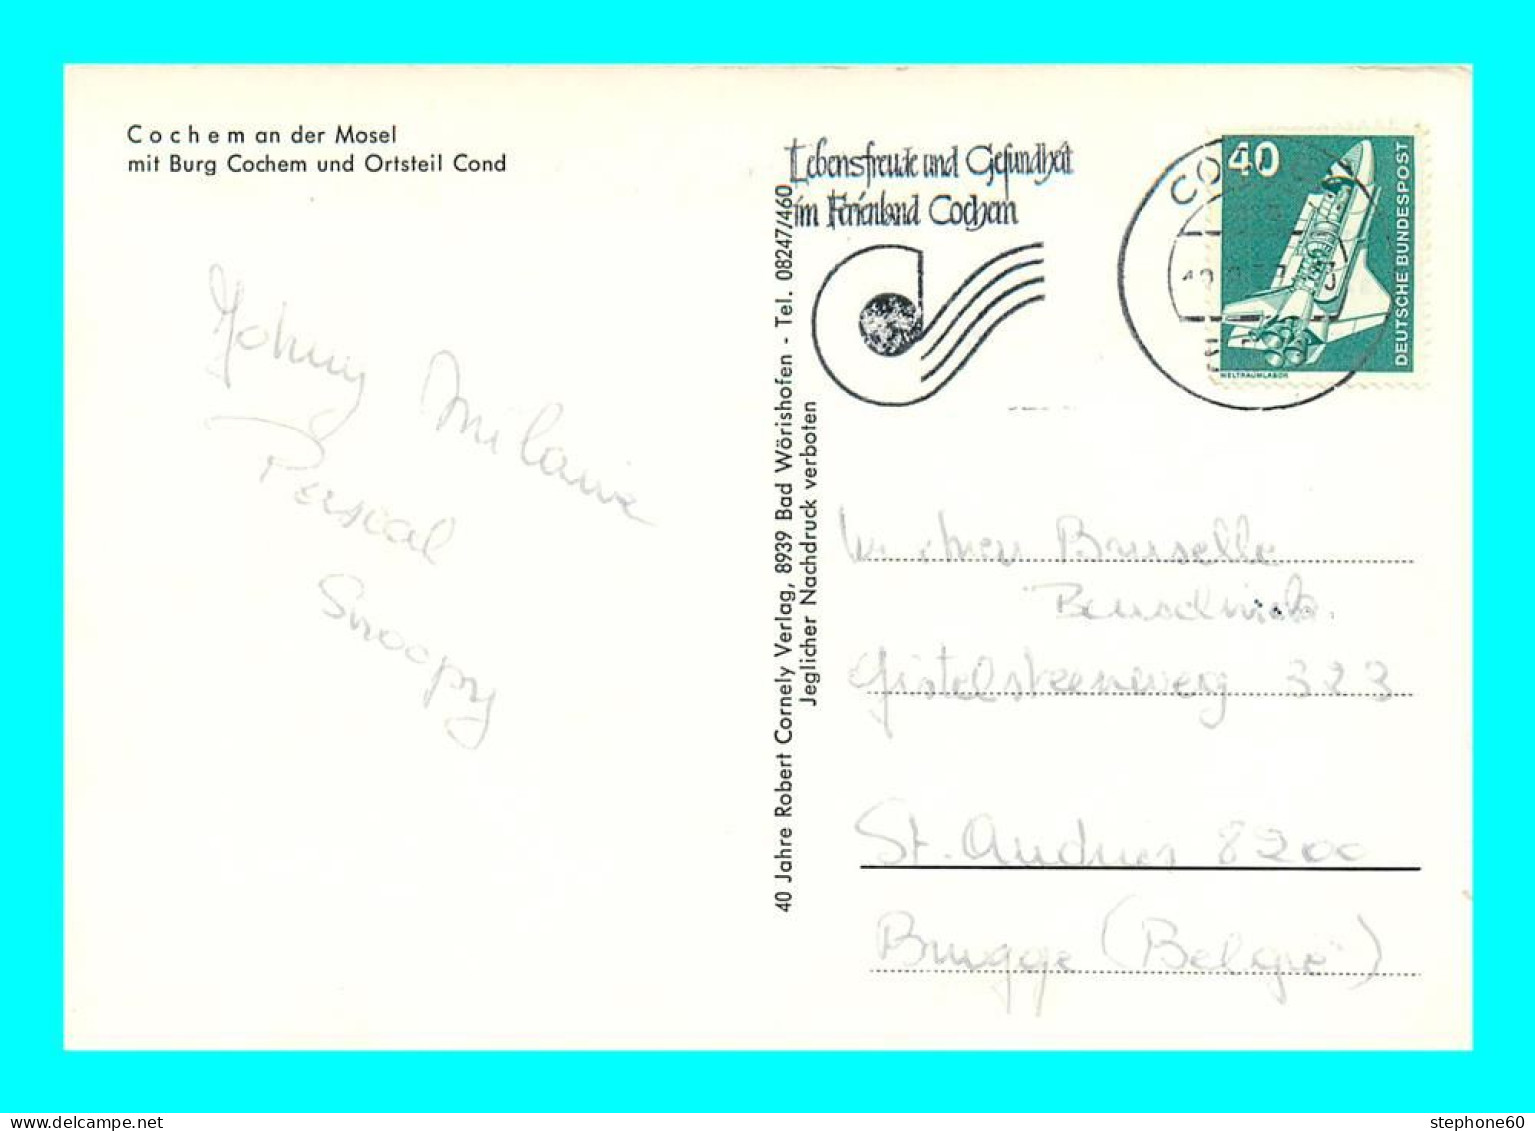 Cochem an der Mosel
mit Burg Cochem und Ortsteil Cond
Johnny Milanie
Pascal
Snoopy
40 Jahre Robert Cornely Verlag, 8939 Bad Wörishofen - Tel. 08247/460
Jeglicher Nachdruck verboten
Lebensfreude und Gesundheit
im Ferienland Cochem
CO
40
DEUTSCHE BUNDESPOST
WELTRAUMLABOR
Bruselle
Gistelsteenweg 323
St. Andries 8200
Brugge (België)
stephone60